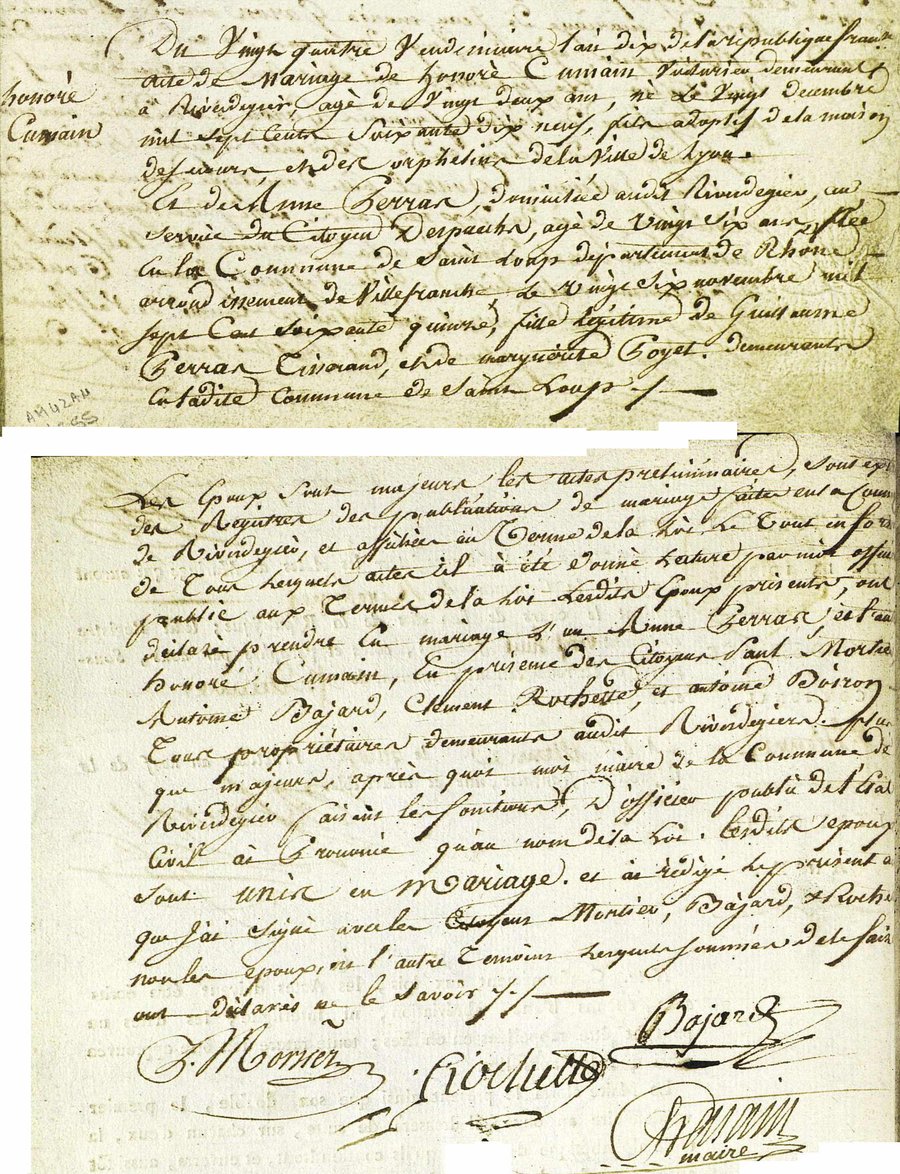 honoré
Cumain
Du Vingt quatre Vendemiaire l'an dix de la republique fran
acte de Mariage de honoré Cumain Voiturier demeurant
à Riverdegier, agé de Vingt deux ans, né Le Vingt decembre
mil sept Cents Soixante dix neuf, fils adoptif de la maison
des et des orphelins de la Ville de Lyon.
Et de Anne Perras, domiciliée audit Riverdegier, au
Service du Citoyen agé de Vingt Six ans, Née
En la Commune de Saint Loup departement de Rhône
arrondissement de Villefranche Le Vingt Six novembre mil
sept Cent Soixante quinze, fille légitime de Guillaume
Perras Tisserand, et de marguerite Poyet. demeurants
En ladite Commune de Saint Loup ./.
Les Epoux sont majeurs les actes preliminaires, sont ex
des Registres des publications de mariage faites en la Com
de Riverdegier, et affichées au Terme de la Loi. Le Tout en for
De Tous lesquels actes il à été donné Lecture par moi offi
public aux Termes de la Loi Lesdits Epoux présents, ont
déclaré prendre En mariage L'un Anne Perras, et l'au
honoré Cumain, En présence des Citoyens Paul Mortie
Antoine Bajard, Clement Rochette, et antoine Boiron
Tous propriétaires demeurants audit Riverdegiers. plus
que majeurs, après quoi moi maire de la Commune de
Riverdegier faisant les fonctions, D'officier public de l'Etat
Civil ai Prononcé qu'au nom de la Loi. lesdits epoux
sont unis en mariage. et ai rédigé le présent a
que J'ai Signé avec les Citoyens Mortier, Bajard, & Roche
non les epoux, ni l'autre Temoins lesquels Sommés de le fair
ont déclarés ne le Savoir ./.
Bajard
P. Mortier
Rochette
maire